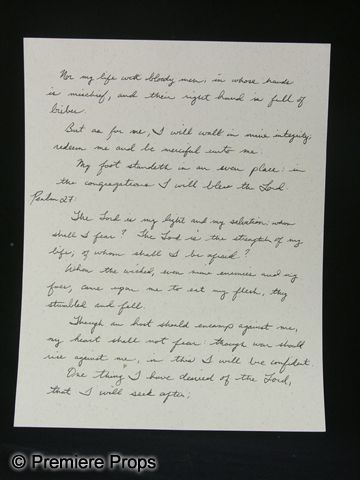 Nor my life with bloody men; in whose hands
is mischief, and their right hand is full of
bribes.
But as for me, I will walk in mine integrity;
redeem me and be merciful unto me.
My foot standeth in an even place: in
the congregations I will bless the Lord
Psalm 27:
The Lord is my light and my salvation; whom
shall I fear? The Lord is the strength of my
life; of whom shall I be afraid?
When the wicked, even mine enemies and my
foes, came upon me to eat my flesh, they
stumbled and fell.
Though an host should encamp against me,
my heart shall not fear: though war should
rise against me, in this I will be confident.
One thing I have desired of the Lord,
that I will seek after;
© Premiere Props